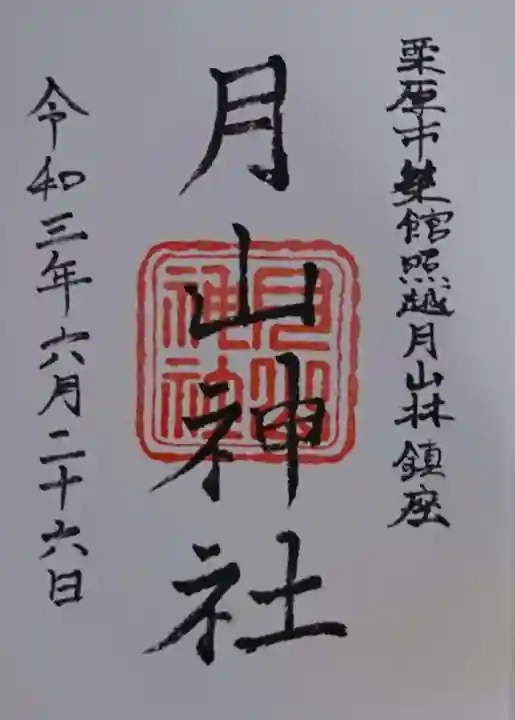 栗原市築館照越月山林鎮座
月山神社
月山神社
令和三年六月二十六日